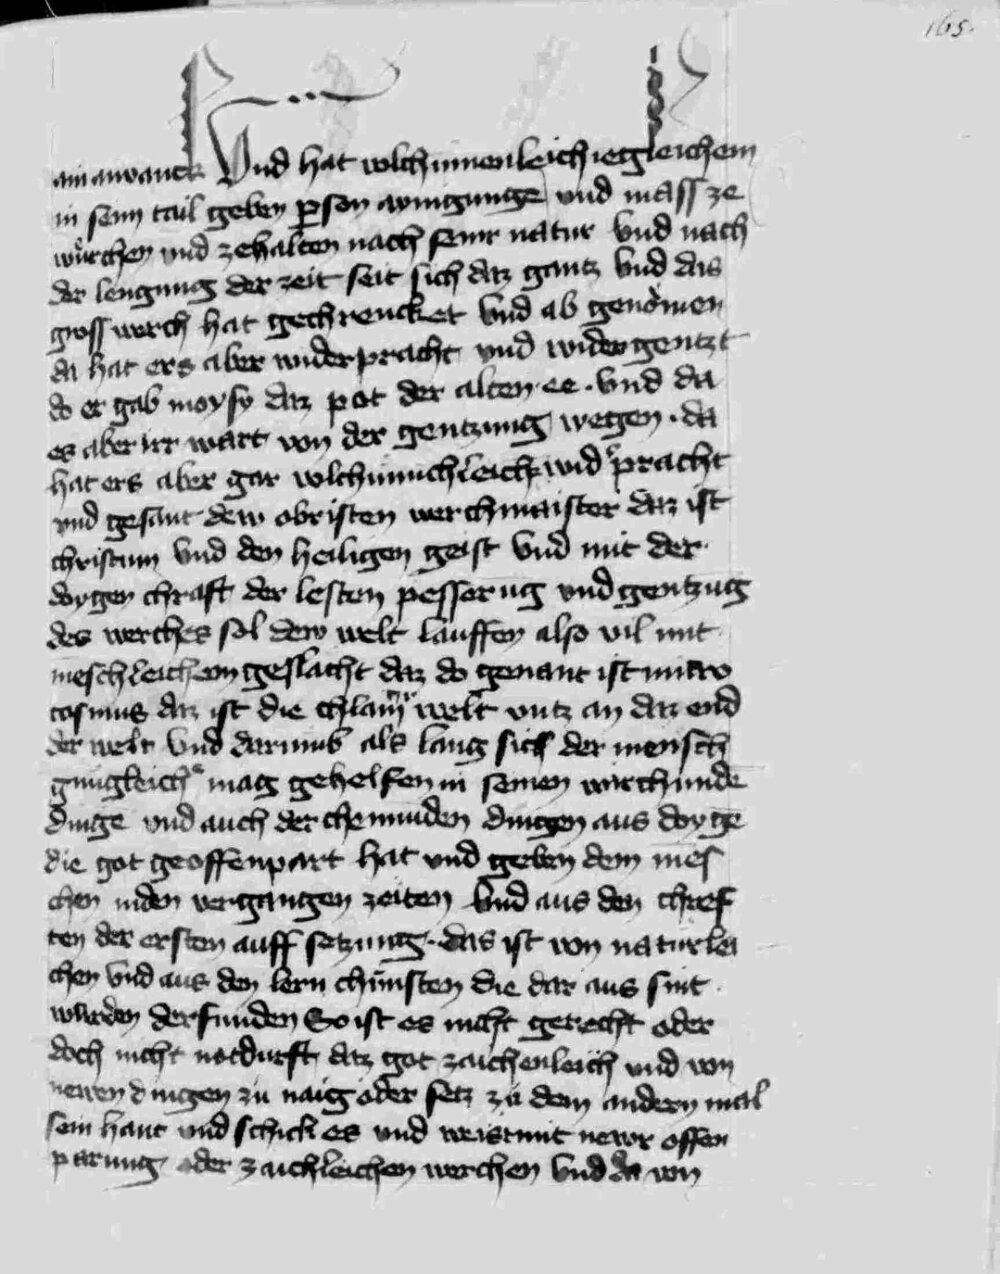 165.
ain anvanck Vnd hat volchumenleich iegleichem
in seim tail geben person aynigunge vnd mass ze
würchen vnd zehalten nach seinr natur Vnd nach
der lengung der zeit seit sich daz gantz Vnd das
gross werch hat gechrencket Vnd ab genomen
da hat ers aber wider pracht vnd wider gentzt
do er gab moysy daz pot der alten ee . Vnd da
es aber irr wart von der gentzung wegen . da
hat ers aber gar volchumichleich wider pracht
vnd gesant den obristen werchmaister daz ist
christum Vnd den heiligen geist Vnd mit der
doygen chraft der lesten pesserug vnd gentzug
des werches sol dew welt lauffen also vil mit
meschleichem geslacht daz do genant ist micro
cosmus daz ist die chlainer welt vntz an daz end
der welt Vnd darumb als lang sich der mensch
mag gehelfen in seinen würchunde
dinge vnd auch der chemunden dingen aus doyge
die got geoffenpart hat vnd geben dem mes
chen in den vergangen zeiten Vnd aus den chref
ten der ersten auff setzung . das ist von naturlei
chen Vnd aus den lern chünsten die dar aus sint
wurden derfunden So ist es nicht gerecht oder
doch nicht notdurft daz got zaichenleich vnd von
newen dingen zu naig oder setz zu dem andern mal
sein hant vnd schick es vnd weis mit newr offen
parung oder zaichleichen werchen Vnd da von